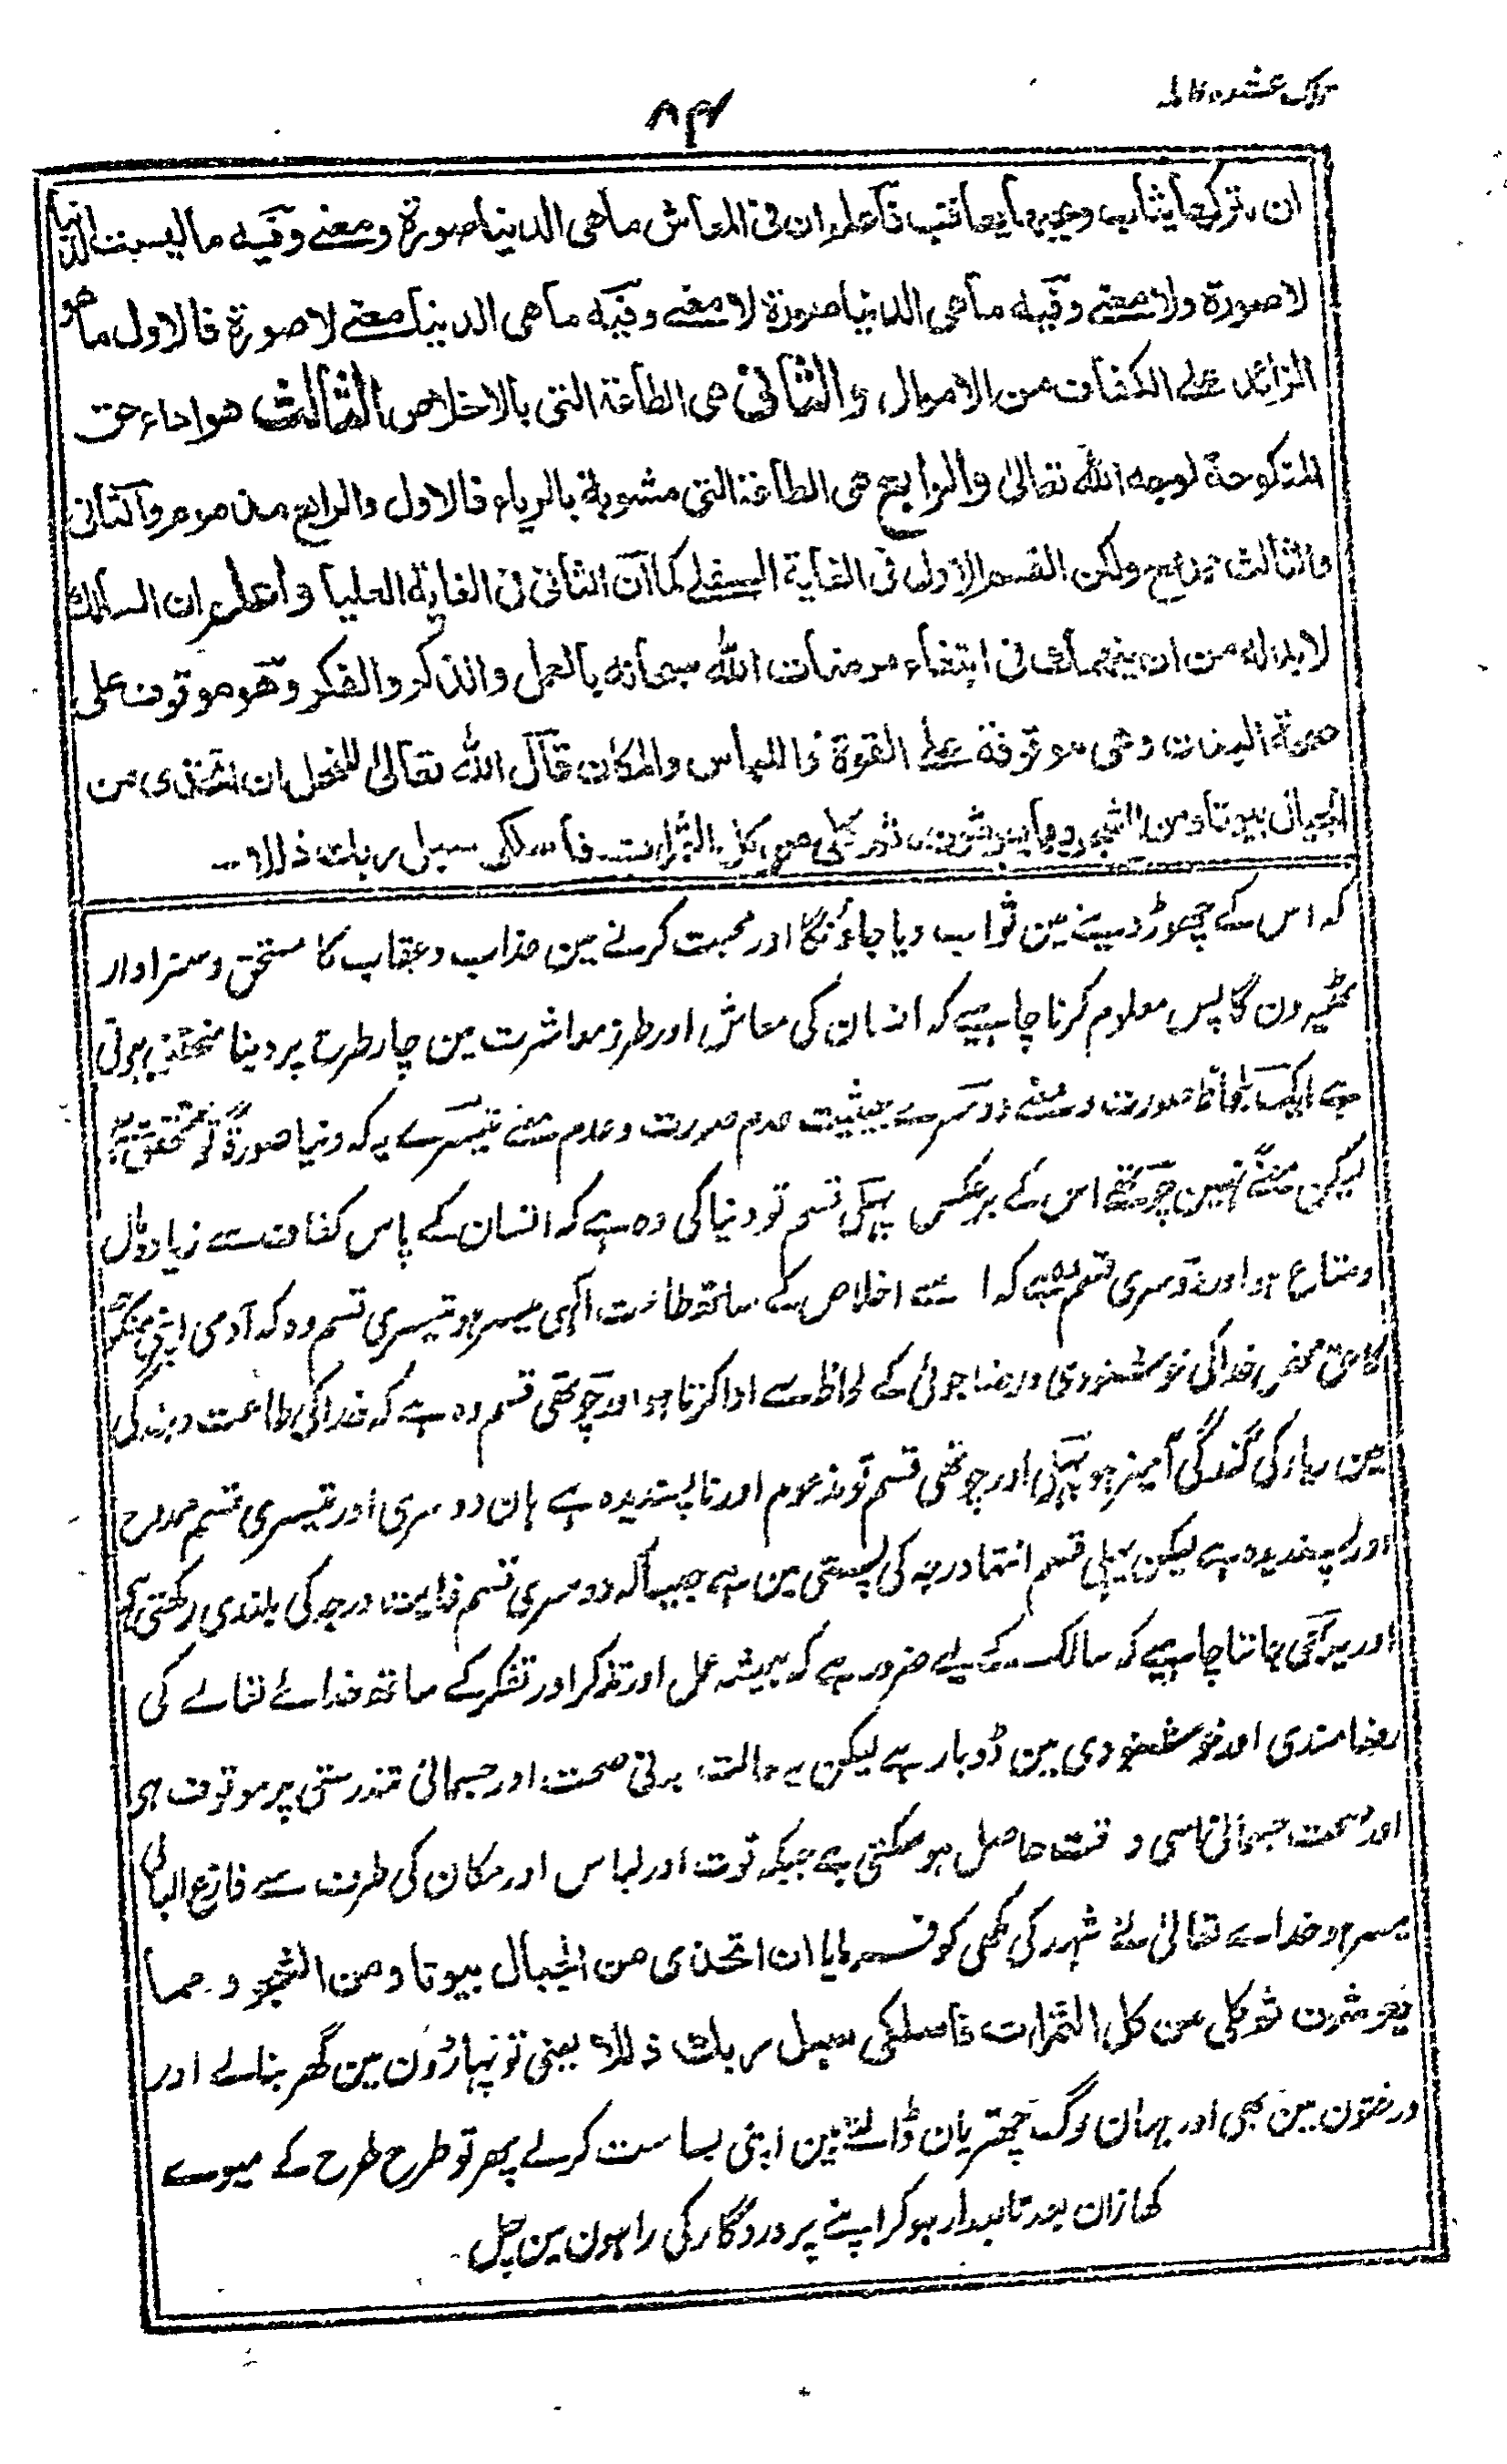 تلک عشرہ کاملہ
۸۴
ان بترکھا یثاب وبحبھا یعاقب فاعلم ان فی المعاش ما ھی الدنیا صورۃ ومعنے وفیہ ما لیست الدنیا
لا صورۃ ولا معنے وفیہ ما ھی الدنیا صورۃ لا معنے وفیہ ما ھی الدنیا معنے لا صورۃ فالاول ما ھو
الزائد علے الکفاف من الاموال والثانی ھی الطاعۃ التی بالاخلاص الثالث ھو اداء حق
المنکوحۃ لوجہ اللہ تعالیٰ والرابع ھی الطاعۃ التی مشوبۃ بالریاء فالاول والرابع مذموم والثانی
والثالث ولکن القسم الاول فی الغایۃ السفلے کما ان الثانی فی الغایۃ العلیا واعلم ان السالک
لا بد لہ من ان ینھمک فی ابتغاء مرضات اللہ سبحانہ بالعمل والذکر والفکر وھو موقوف علی
صحۃ البدن وھی موقوفۃ علے القوۃ واللباس والمکان قال اللہ تعالیٰ للنحل ان اتخذی من
الجبال بیوتا ومن الشجر ومما یعرشون ثم کلی من کل الثمرات فاسلکی سبل ربک ذللا۔
کہ اس کے چھوڑ دینے مین ثواب دیا جاؤنگا اور محبت کرنے مین عذاب وعقاب کا مستحق وسزاوار
ٹھیرون گا پس معلوم کرنا چاہیے کہ انسان کی معاش اور طرز معاشرت مین چار طرح پر دینا متحقق ہوتی
ہے ایک بلحاظ صورت ومعنے دوسرے بحیثیت عدم صورت وعدم معنے تیسرے یہ کہ دنیا صورۃً تو متحقق ہے
لیکن معنےً نہین چوتھے اس کے برعکس پہلی قسم تو دنیا کی وہ ہے کہ انسان کے پاس کفاف سے زیادہ مال
ومتاع ہو اور دوسری قسم یہ ہے کہ اسے اخلاص کے ساتھ طاعت الٰہی میسر ہو تیسری قسم وہ کہ آدمی اپنی منکوحہ
کا حق محض خدا کی خوشنودی ورضاجوئی کے لحاظ سے ادا کرتا ہو اور چوتھی قسم وہ ہے کہ خدا کی طاعت وبندگی
مین ریا کی گندگی آمیز ہو پہلی اور چوتھی قسم تو مذموم اور ناپسندیدہ ہے ہان دوسری اور تیسری قسم ممدوح
اور پسندیدہ ہے لیکن پہلی قسم انتہا درجہ کی پستی مین ہے جیسا کہ دوسری قسم غایت درجہ کی بلندی رکھتی ہے
اور یہ بھی جاننا چاہیے کہ سالک کے لیے ضرور ہے کہ ہمیشہ عمل اور تذکر اور تفکر کے ساتھ خدائے تعالے کی
رضامندی اور خوشنودی مین ڈوبا رہے لیکن یہ حالت بدنی صحت اور جسمانی تندرستی پر موقوف ہی
اور صحت جسمانی اسی وقت حاصل ہو سکتی ہے جبکہ قوت اور لباس اور مکان کی طرف سے فارغ البالی
میسر ہو خدائے تعالیٰ نے شہد کی مکھی کو فرمایا ان اتخذی من الجبال بیوتا ومن الشجر ومما
یعرشون ثم کلی من کل الثمرات فاسلکی سبل ربک ذللا یعنی تو پہاڑون مین گھر بنالے اور
درختون مین بھی اور جہان لوگ چھتریان ڈالتے ہین اپنی بساست کرلے پھر تو طرح طرح کے میوے
کھا زان بعد تابعدار ہوکر اپنے پروردگار کی راہون مین چل